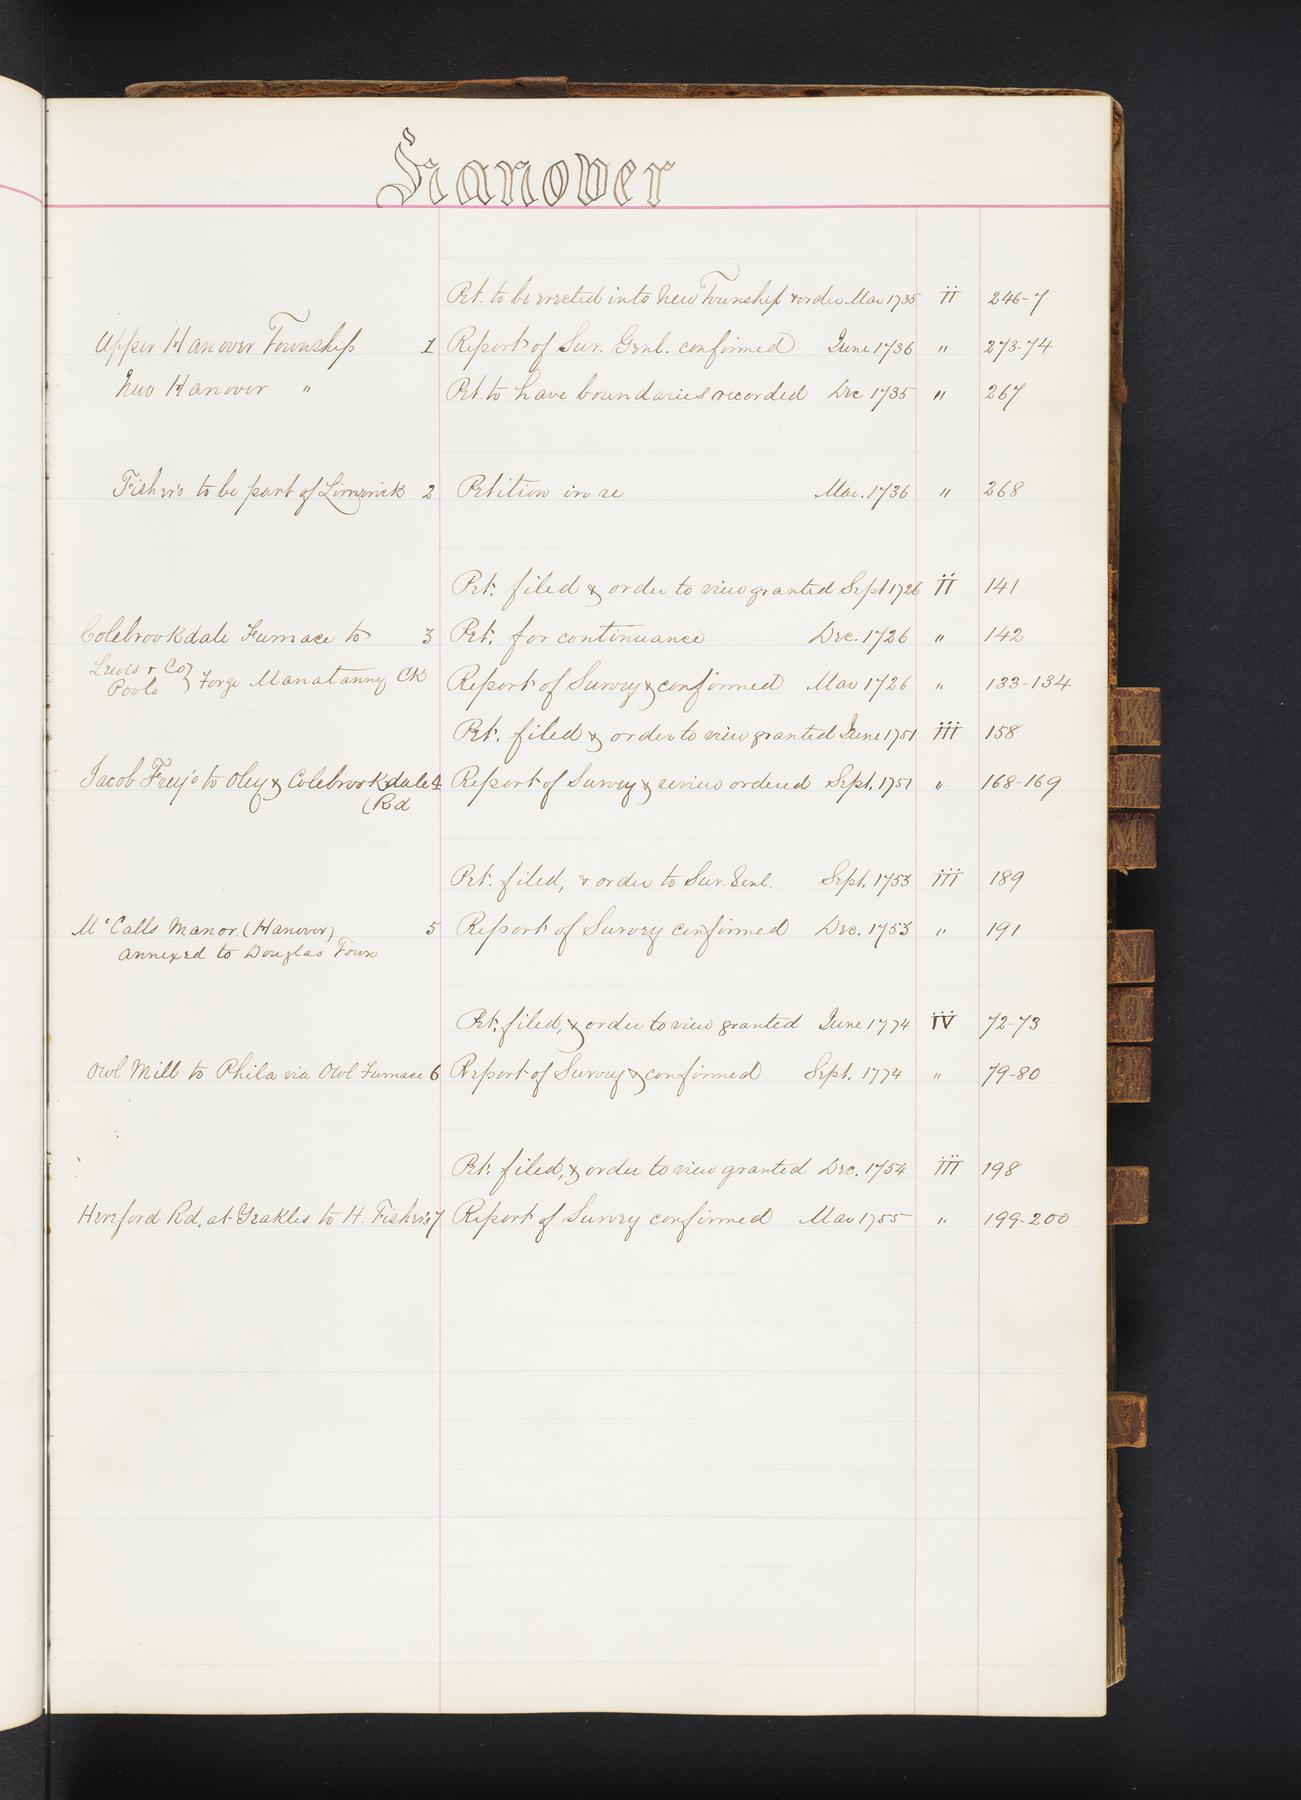 Hanover
Pet. to be erected into New Township & order Mar 1735 ii 246-7
Upper Hanover Township 1 Report of Sur. Genl. confirmed June 1736 " 273-74
New Hanover " Pet. to have boundaries recorded Dec 1735 " 267
Fisher's to be part of Limerick 2 Petition in re Mar. 1736 " 268
Pet. filed & order to view granted Sept 1726 ii 141
Colebrookdale Furnace to 3 Pet. for continuance Dec. 1726 " 142
Lewis & Co
Pools } Forge Manatanny Ck Report of Survey & confirmed Mar 1726 " 133-134
Pet. filed & order to view granted June 1751 iii 158
Jacob Frey's to Oley & Colebrookdale 4 Report of Survey & review ordered Sept. 1751 " 168-169
(Rd
Pet. filed, & order to Sur. Genl. Sept. 1753 iii 189
McCalls Manor (Hanover) 5 Report of Survey confirmed Dec. 1753 " 191
annexed to Douglas Town
Pet. filed, & order to view granted June 1774 iv 72-73
Owl Mill to Phila via Owl Furnace 6 Report of Survey & confirmed Sept. 1774 " 79-80
Pet. filed, & order to view granted Dec. 1754 iii 198
Hereford Rd, at to H. Fisher's 7 Report of Survey confirmed Mar 1755 " 199-200
K
L
M
N
O